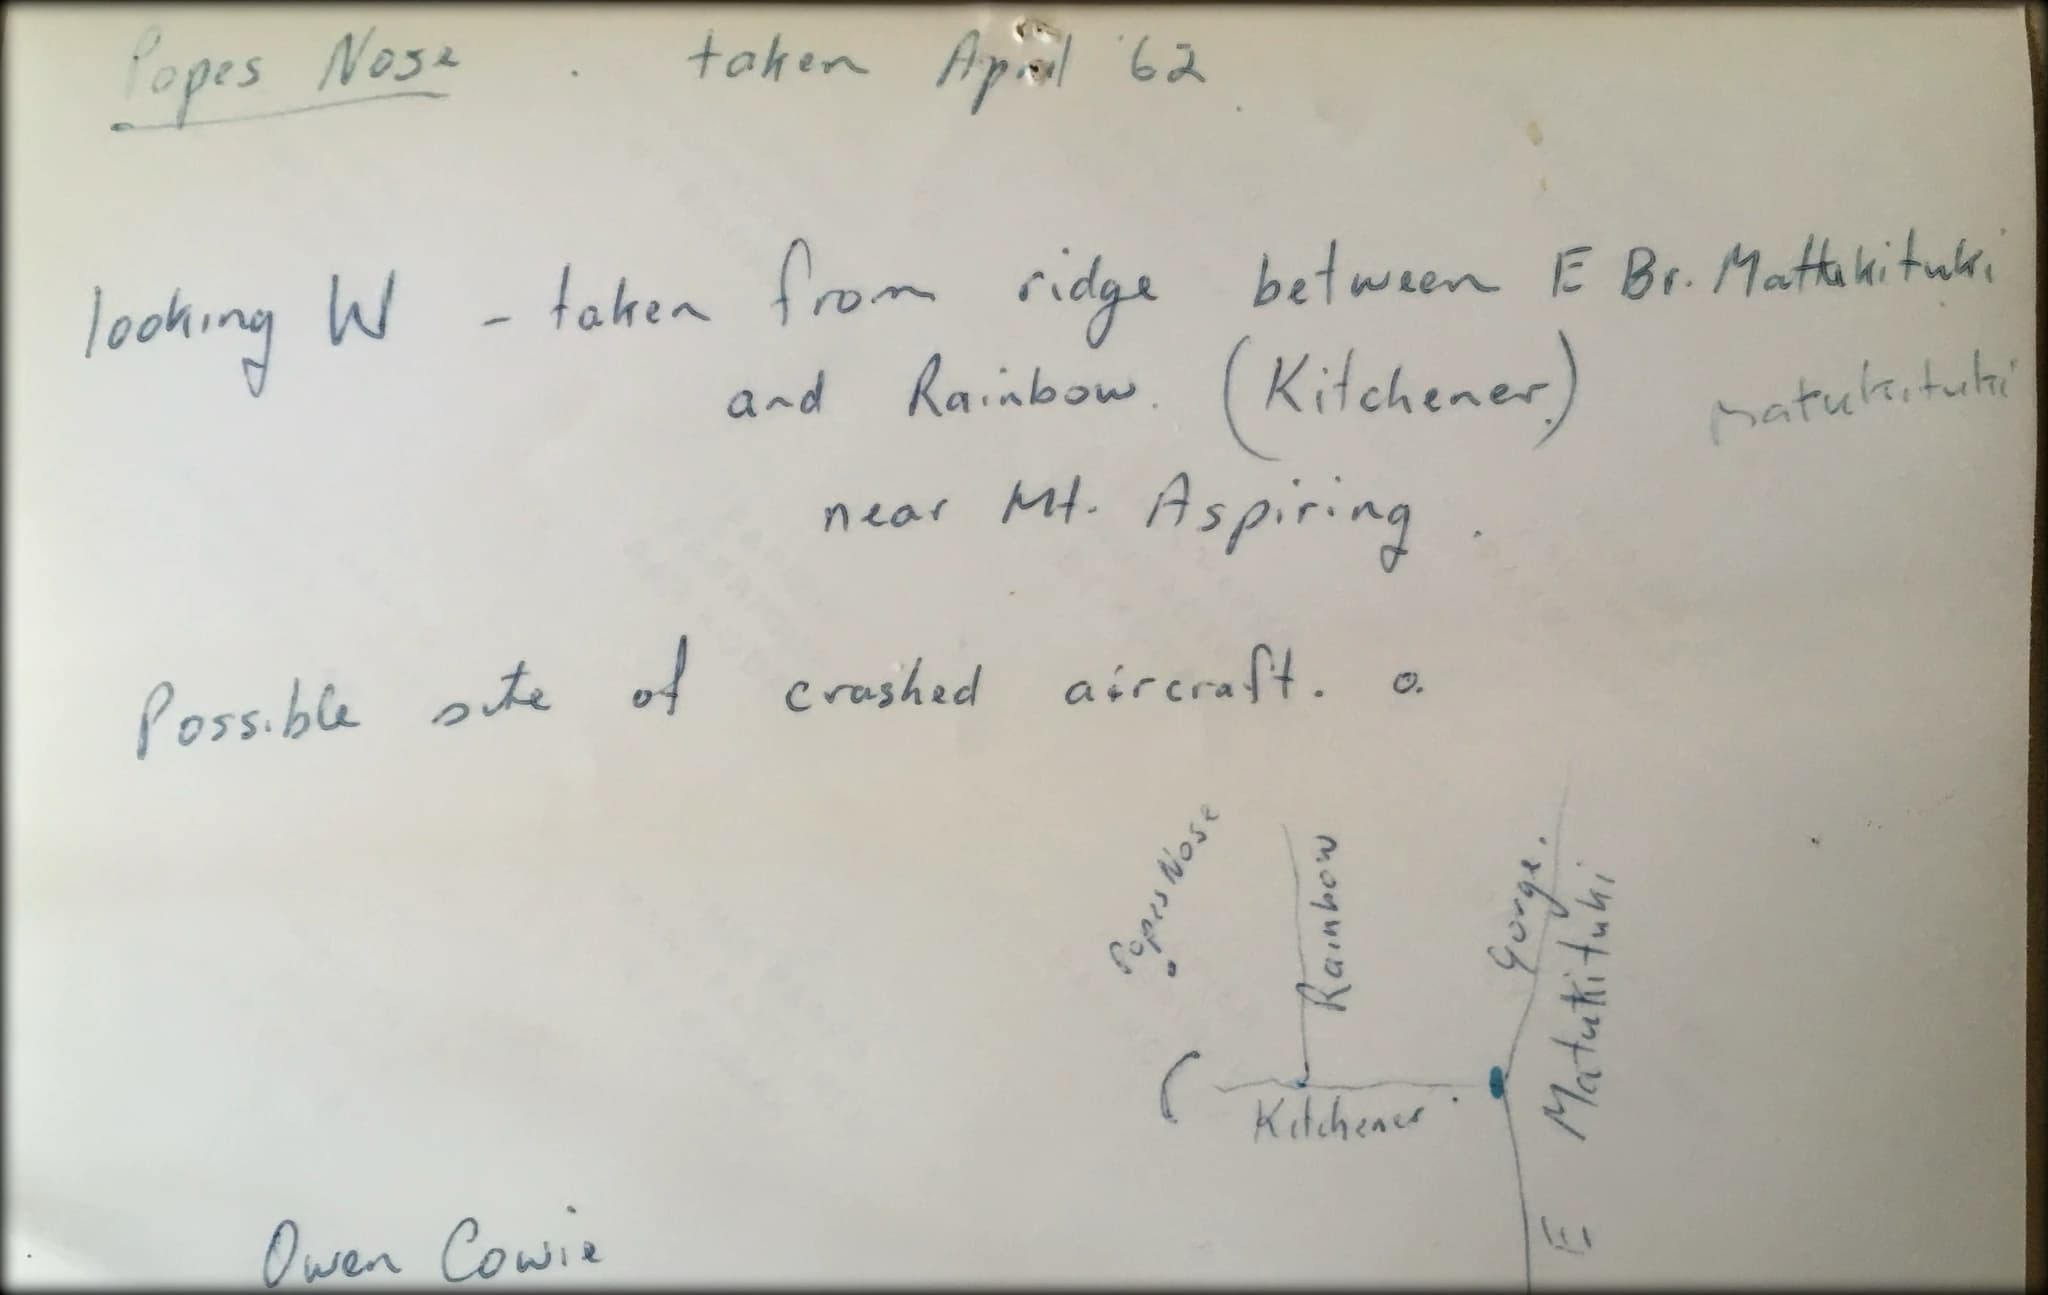 Popes Nose . taken April '62.
looking W - taken from ridge between E Br. Mattukituki
and Rainbow. (Kitchener.) matukituki
near Mt. Aspiring.
Possible site of crashed aircraft. o.
Popes Nose
Rainbow
Gorge.
E Matukituki
Kitchener.
Owen Cowie